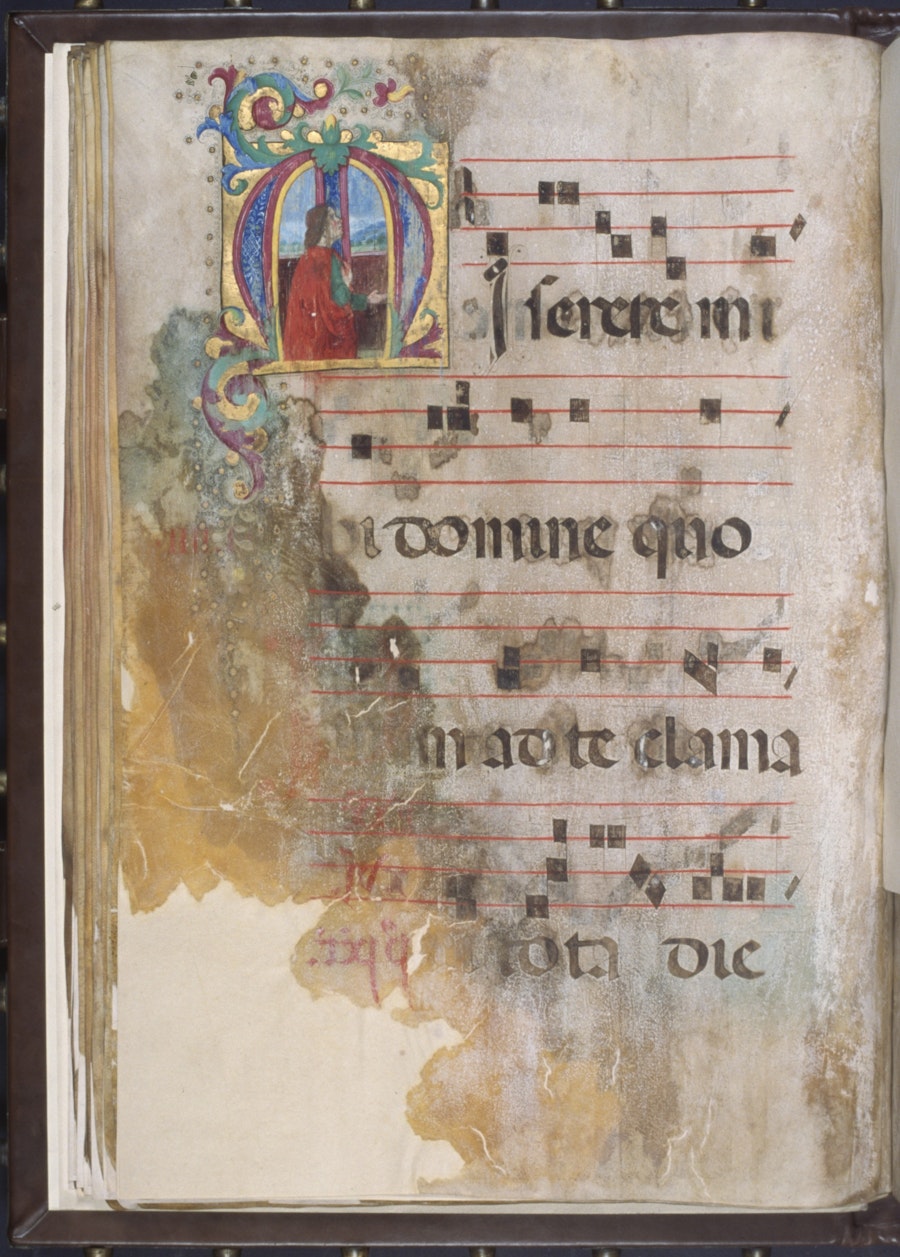 Miserere mi
i domine quo
m ad te clama
tota die